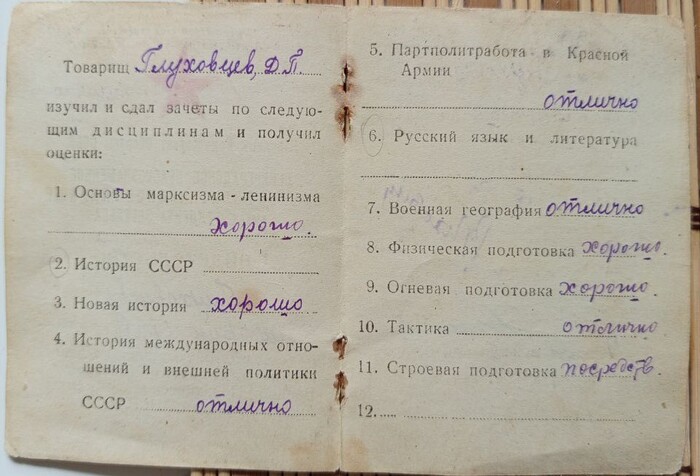 Товарищ Глуховцев, Д.П.
изучил и сдал зачеты по следую-
щим дисциплинам и получил
оценки:
1. Основы марксизма - ленинизма
хорошо.
2. История СССР
3. Новая история хорошо
4. История международных отно-
шений и внешней политики
СССР отлично
5. Партполитработа в Красной
Армии
отлично
6. Русский язык и литература
7. Военная география отлично
8. Физическая подготовка хорошо.
9. Огневая подготовка хорошо.
10. Тактика отлично
11. Строевая подготовка посредств.
12.